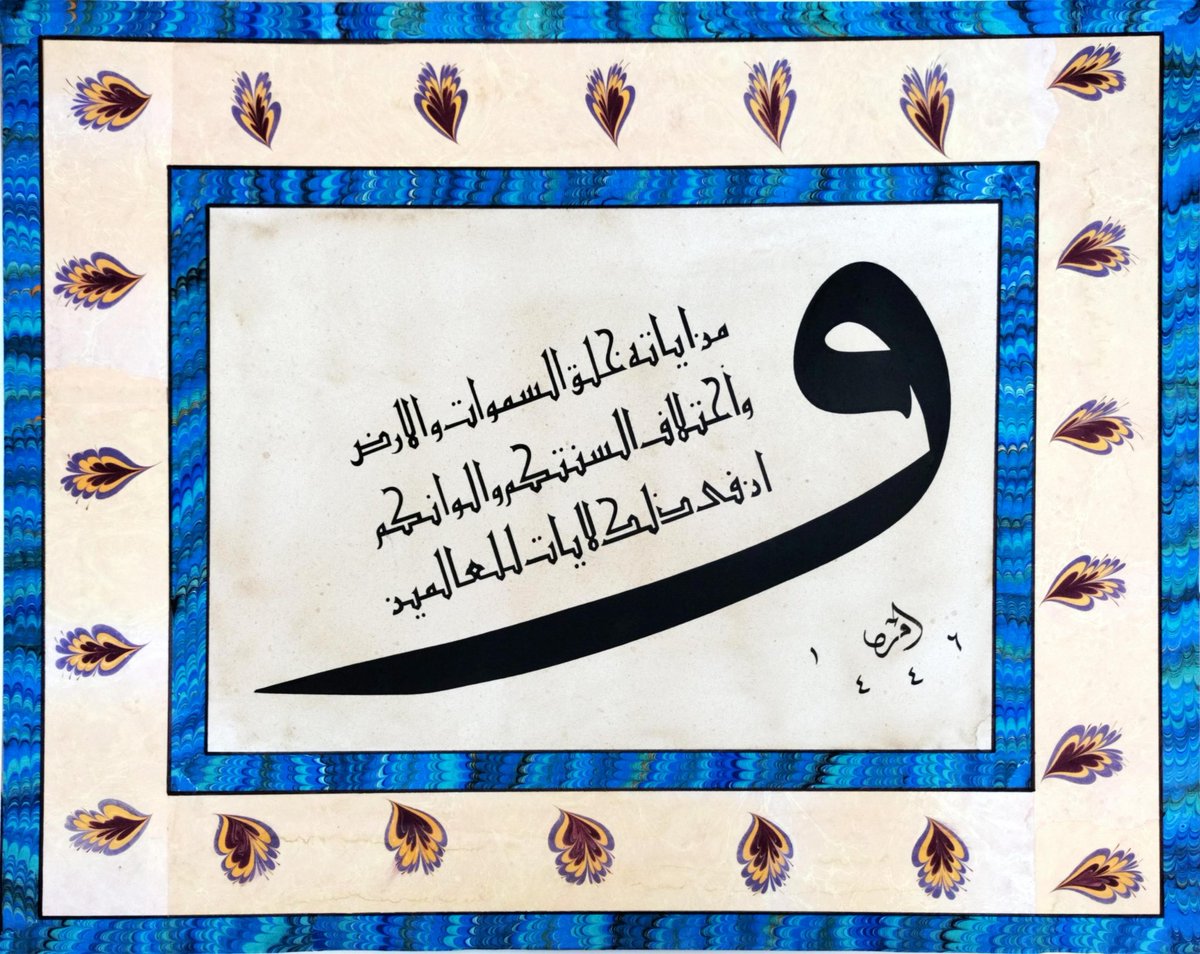 و
من اياته خلق السموات والارض
واختلاف السنتكم والوانكم
ان فى ذلك لايات للعالمين
١٤٤٦